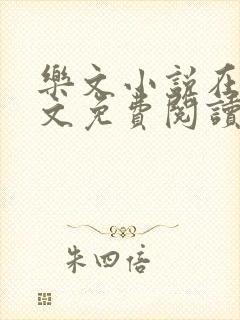 樂文小說在
文免費閱讀
朱四倍